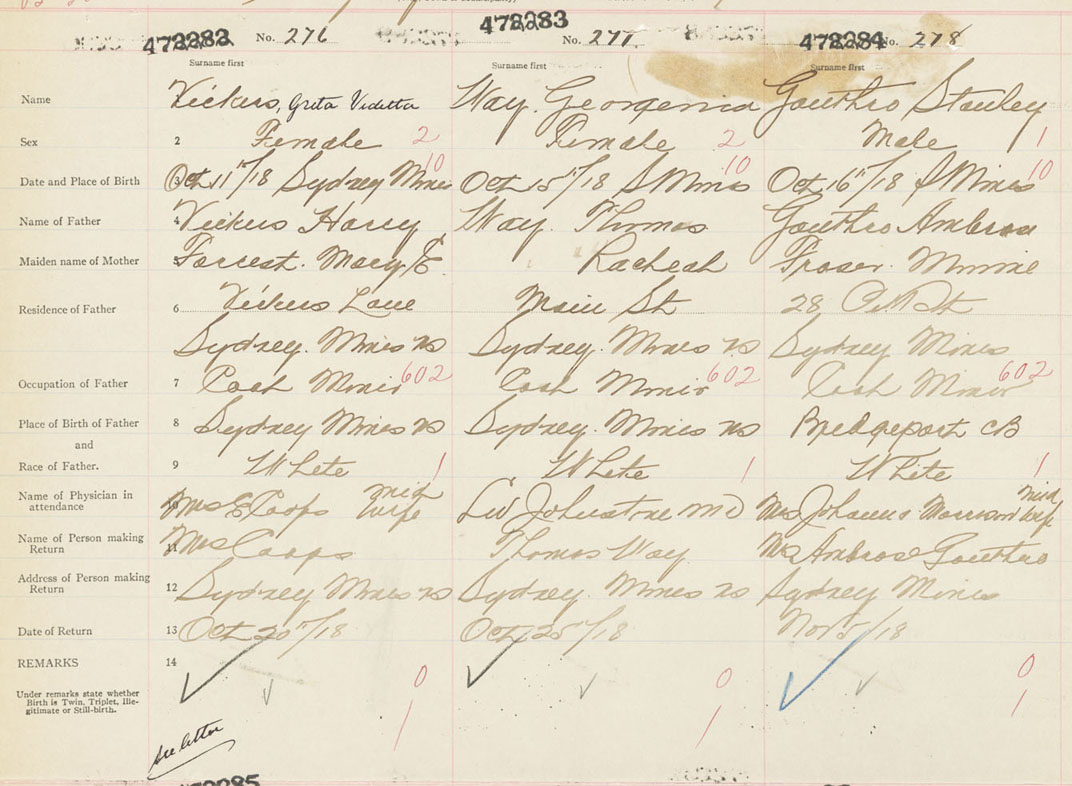 472283 No. 276 472283 No. 277 472284 No. 278
Surname first Surname first Surname first
Name Vickers, Greta Vedetta Way. Georgenia Gouthro Stanley
Sex 2 Female 2 Female 2 Male 1
Date and Place of Birth 3 Oct 11th/18 Sydney Mines 10 Oct 15th/18 S Mines 10 Oct 16th/18 S Mines 10
Name of Father 4 Vickers Harry Way. Thomas Gouthro Ambrose
Maiden name of Mother 5 Forrest. Mary E. Racheal Fraser. Minnie
Residence of Father 6 Vickers Lane Main St 28 St
Sydney. Mines ns Sydney. Mines ns Sydney Mines
Occupation of Father 7 Coal Miner 602 Coal Miner 602 Coal Miner 602
Place of Birth of Father 8 Sydney Mines ns Sydney. Mines ns Bridgeport CB
and
Race of Father. 9 White 1 White 1 White 1
Name of Physician in attendance 10 Mrs E Coops mid wife Johnstone MD Mrs Johanna Morrison mid wife
Name of Person making Return 11 Mrs Coops Thomas Way Mrs Ambrose Gouthro
Address of Person making Return 12 Sydney Mines ns Sydney. Mines ns Sydney Mines
Date of Return 13 Oct 20th/18 Oct 25th/18 Nov 5/18
REMARKS 14
0 0 0
Under remarks state whether
Birth is Twin, Triplet, Ille-
gitimate or Still-birth.
1 1 1
see letter
472285